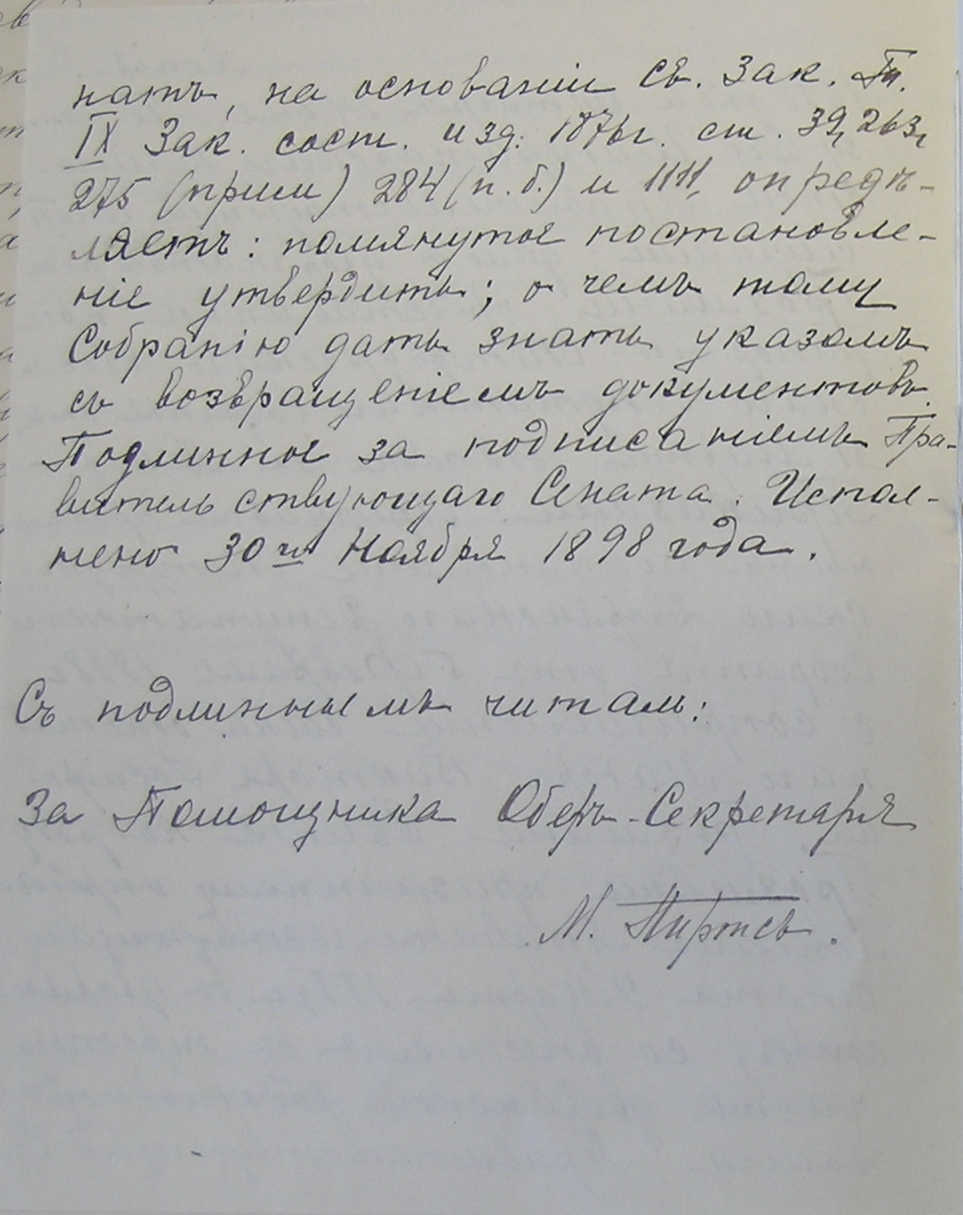 натъ, на основаніи Св. Зак. Т.
IX Зак. сост. изд. 1876г. ст. 39, 263,
275 (прим) 284 (п. б.) и 1111, опредѣ-
ляетъ: помянутое постановле-
ніе утвердить; о чемъ тому
Собранію дать знать указомъ
съ возвращеніемъ документовъ.
Подлинное за подписаніемъ Пра-
вительствующаго Сената. Испол-
нено 30го Ноября 1898 года.
Съ подлиннымъ читалъ:
За Помощника Оберъ-Секретаря
М.